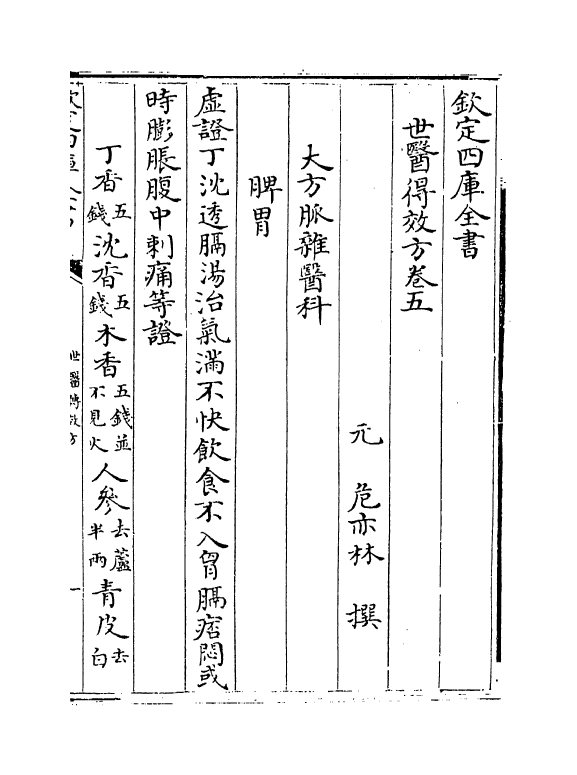 欽定四庫全書
世醫得效方卷五
元 危亦林 撰
大方脈雜醫科
脾胃
虛證丁沈透膈湯治氣滿不快飲食不入胷膈痞悶或
時膨脹腹中刺痛等證
丁香五錢沈香五錢木香五錢並不見火人參去蘆半兩青皮去白
世醫得效方
一